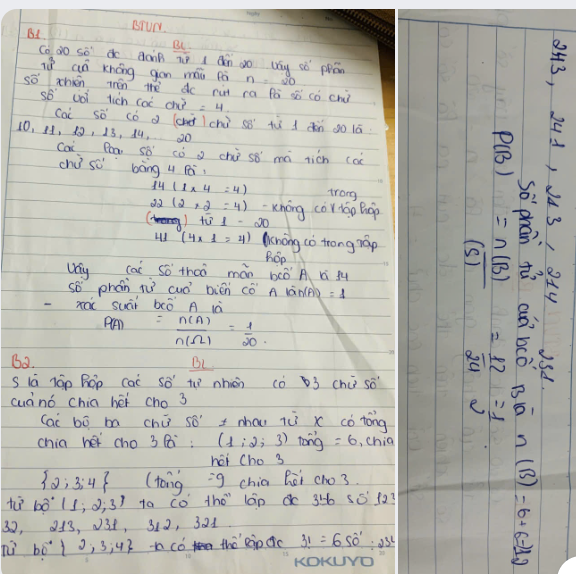 BTVN.
B1. BL
Có 20 số đc đánh từ 1 đến 20 vậy số phần
tử của không gian mẫu là n = 20
số trên thẻ đc rút ra là số có chữ
số với tích các chữ = 4.
Các số có 2 chữ số từ 1 đến 20 là:
10, 11, 12, 13, 14, ... 20
Các số có 2 chữ số mà tích các
chữ số bằng 4 là:
14 (1 x 4 = 4)
22 (2 x 2 = 4) - không có trong tập hợp
từ 1 - 20
41 (4 x 1 = 4) (không có trong tập
hợp
Vậy các số thoả mãn bcố A là 14
số phần tử của biến cố A là n(A) = 1
- xác suất bcố A là
P(A) = n(A) / n(Ω) = 1 / 20.
B2. BL
S là tập hợp các số tự nhiên có 3 chữ số
của nó chia hết cho 3
Các bộ ba chữ số ≠ nhau từ X có tổng
chia hết cho 3 là: (1; 2; 3) tổng = 6, chia
hết cho 3
{2; 3; 4} (tổng = 9 chia hết cho 3.
từ bộ (1; 2; 3) ta có thể lập đc 3!=6 số 123
132, 213, 231, 312, 321
Từ bộ {2; 3; 4} ta có thể lập đc 3! = 6 số: 234
KOKUYO
243, 241, 213, 214 231.
Số phần tử của bcố B là n(B) = 6+6=12
P(B) = n(B) / (S) = 12 / 24 = 1 / 2